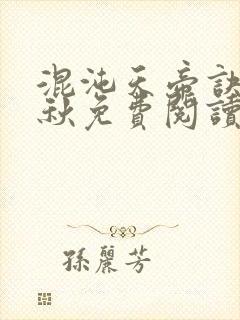 混沌天帝訣
秋免費閱讀
孫麗芳